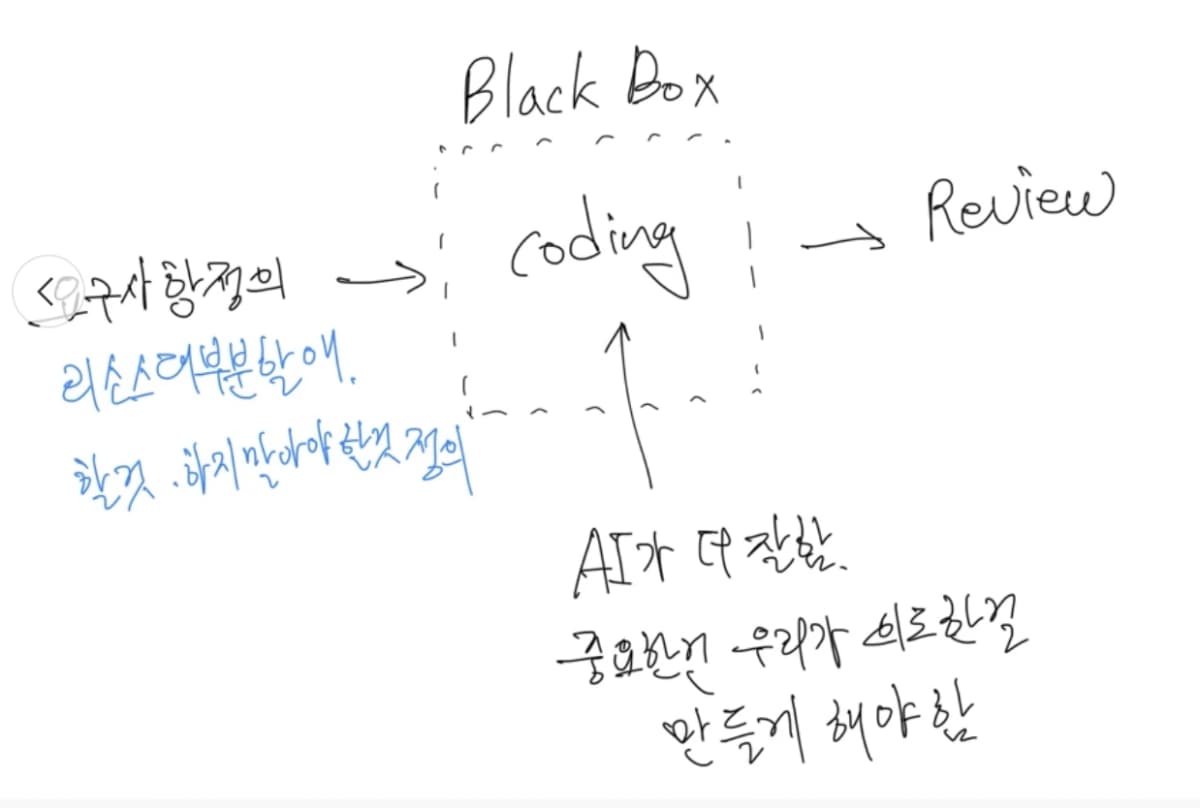 Black Box
coding
Review
<요구사항정의
리소스대부분할애.
할것. 하지말아야할것 정의
AI가 더 잘함.
중요한건 우리가 의도한걸
만들게 해야함